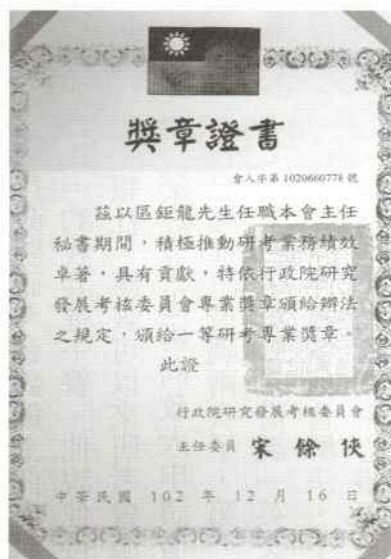 獎章證書
會人字第1020660778號
茲以區鉅龍先生任職本會主任
秘書期間，積極推動研考業務績效
卓著，具有貢獻，特依行政院研究
發展考核委員會專業獎章頒給辦法
之規定，頒給一等研考專業獎章。
此證
行政院研究發展考核委員會
主任委員 宋餘俠
中華民國 102 年 12 月 16 日